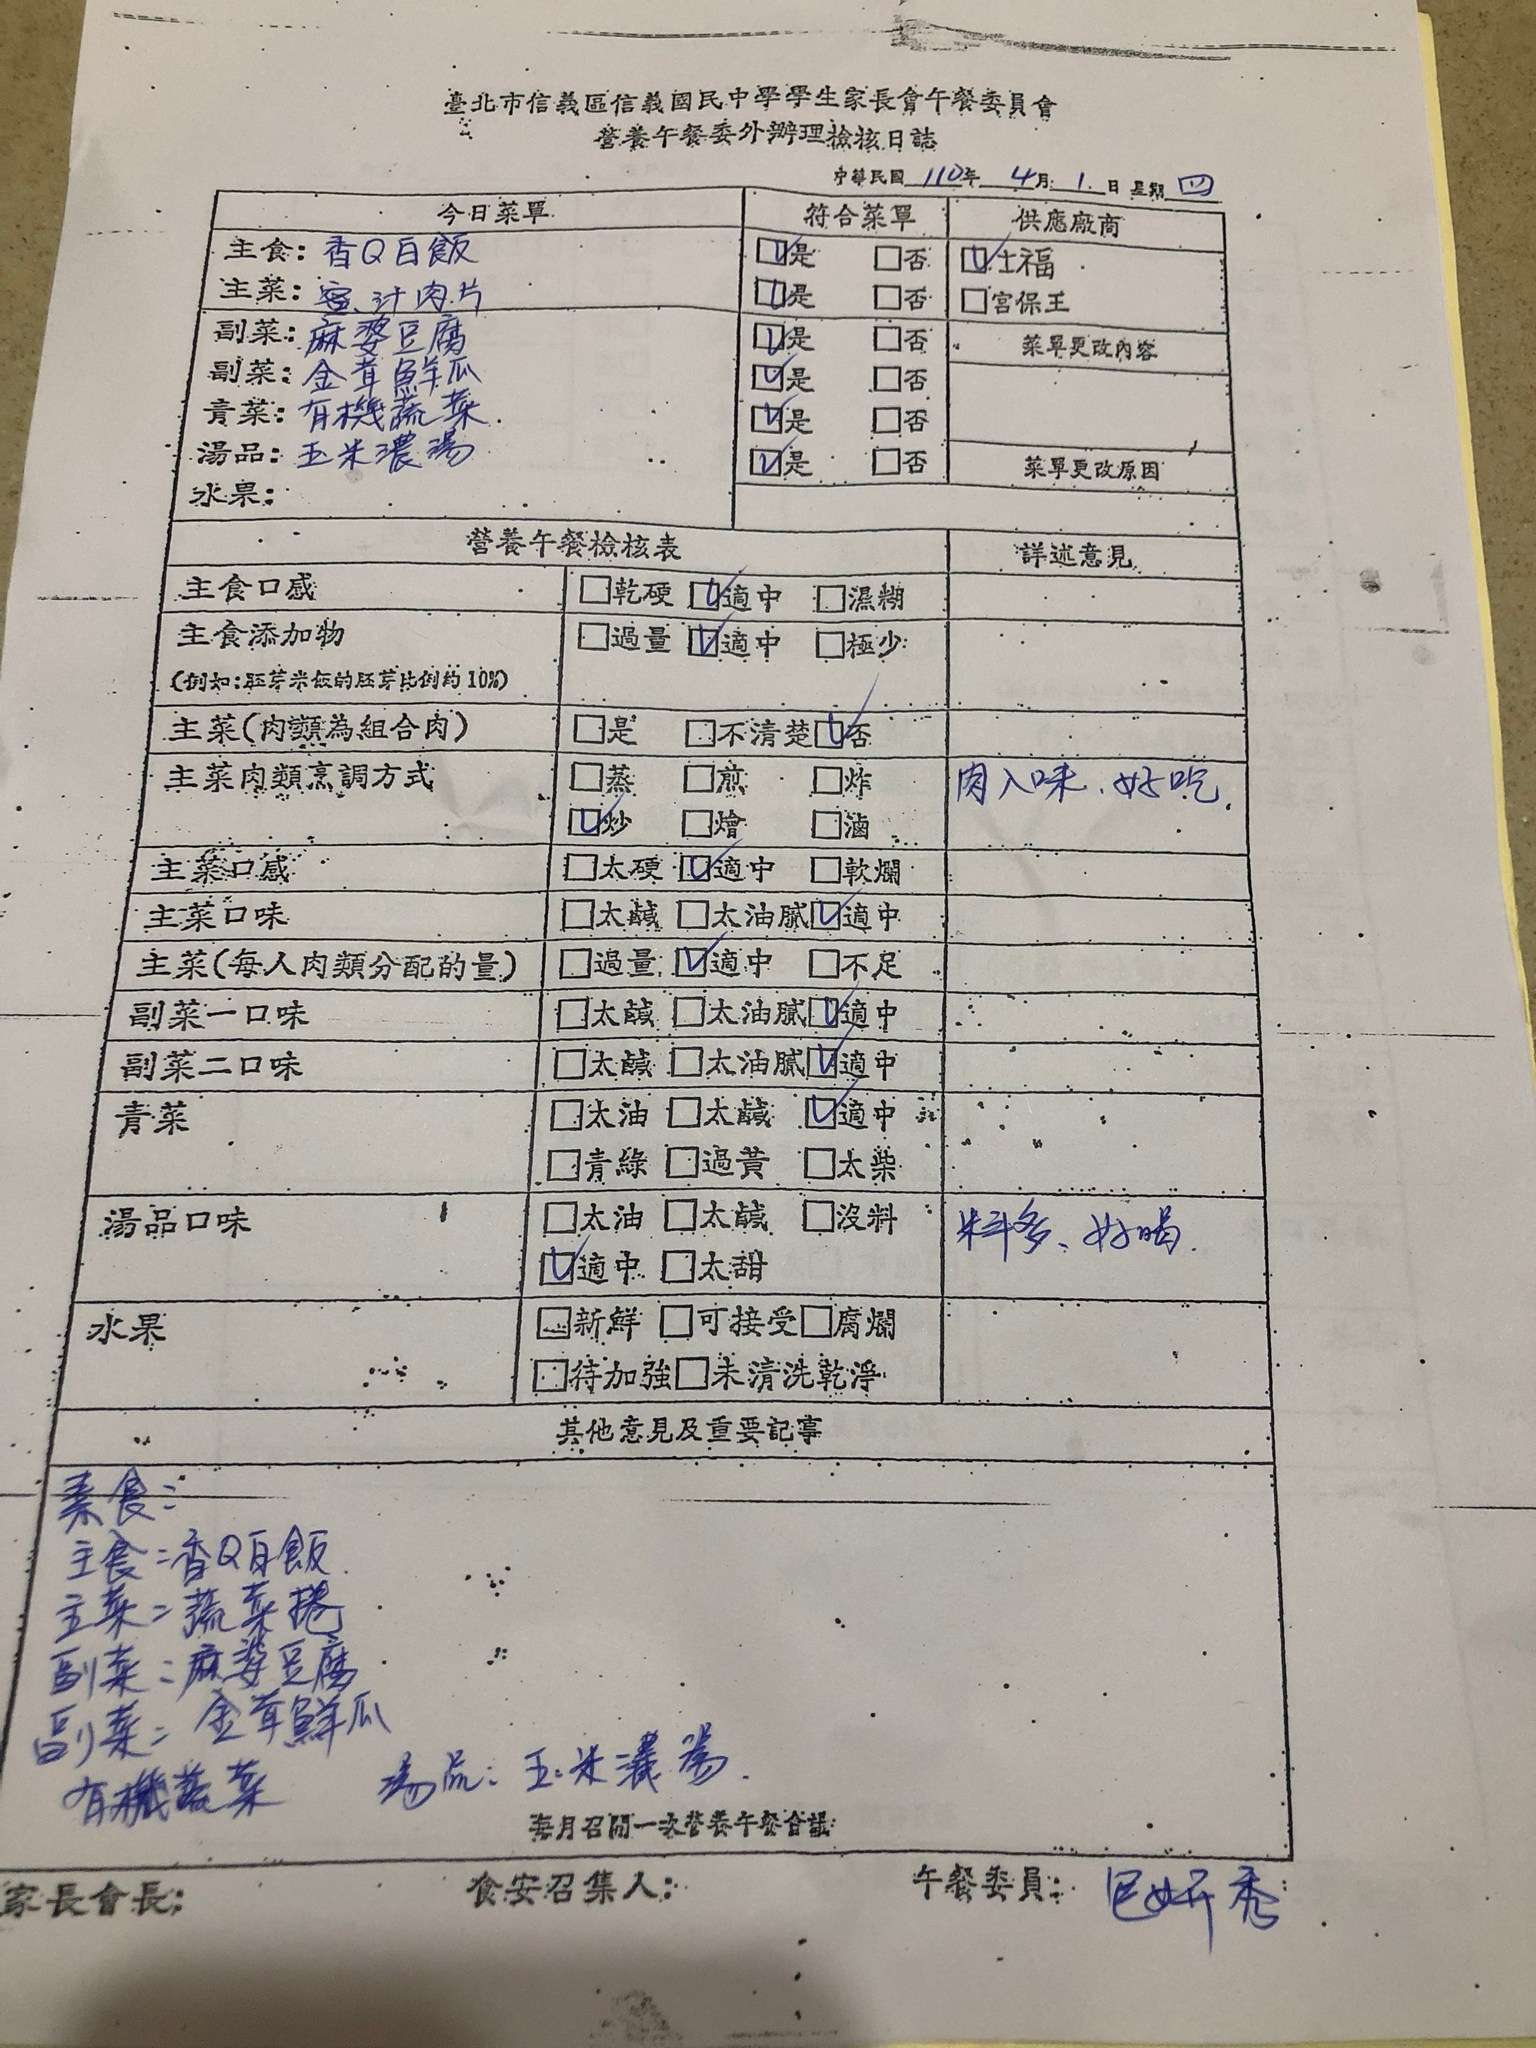 臺北市信義區信義國民中學學生家長會午餐委員會
營養午餐委外辦理檢核日誌
中華民國 110 年 4 月 1 日 星期 四
今日菜單 符合菜單 供應廠商
主食: 香Q白飯 ☑是 □否 ☑士福
主菜: 蜜汁肉片 ☑是 □否 □宮保王
副菜: 麻婆豆腐 ☑是 □否 菜單更改內容
副菜: 金茸鮮瓜 ☑是 □否
青菜: 有機蔬菜 ☑是 □否
湯品: 玉米濃湯 ☑是 □否 菜單更改原因
水果:
營養午餐檢核表 詳述意見
主食口感 □乾硬 ☑適中 □濕糊
主食添加物 □過量 ☑適中 □極少
(例如:胚芽米飯的胚芽比例約10%)
主菜(肉類為組合肉) □是 □不清楚 ☑否
主菜肉類烹調方式 □蒸 □煎 □炸 肉入味、好吃
☑炒 □燴 □滷
主菜口感 □太硬 ☑適中 □軟爛
主菜口味 □太鹹 □太油膩 ☑適中
主菜(每人肉類分配的量) □過量 ☑適中 □不足
副菜一口味 □太鹹 □太油膩 ☑適中
副菜二口味 □太鹹 □太油膩 ☑適中
青菜 □太油 □太鹹 ☑適中
□青綠 □過黃 □太柴
湯品口味 □太油 □太鹹 □沒料 料多、好喝
☑適中 □太甜
水果 □新鮮 □可接受 □腐爛
□待加強 □未清洗乾淨
其他意見及重要記事
素食:
主食:香Q白飯
主菜:蔬菜捲
副菜:麻婆豆腐
副菜:金茸鮮瓜
有機蔬菜 湯品:玉米濃湯
每月召開一次營養午餐會議
家長會長: 食安召集人: 午餐委員: 巴妍秀